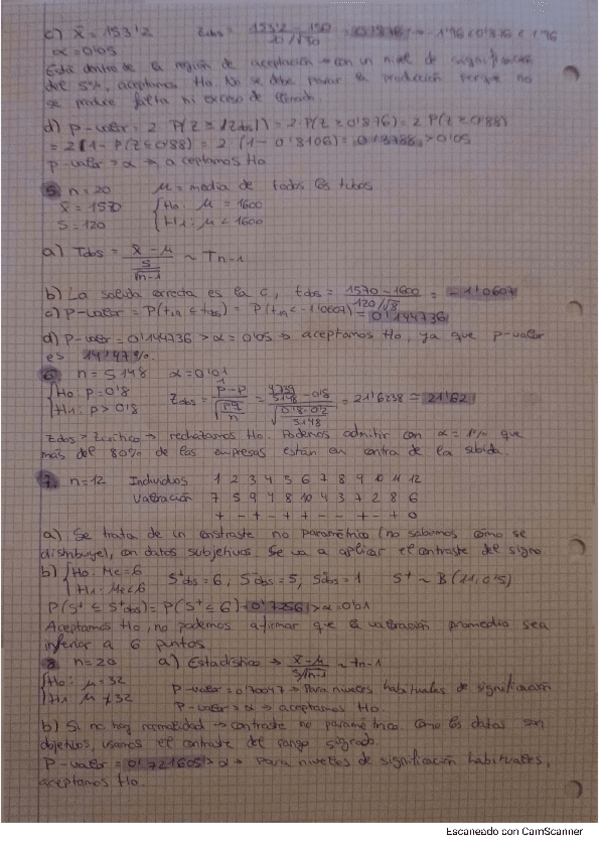 c) x̄ = 153'2 Zobs = (153'2 - 150) / (20/√30) = 0'8763 → -1'96 < 0'876 < 1'96
α = 0'05
Está dentro de la región de aceptación → con un nivel de significación
del 5%, aceptamos Ho. No se debe parar la producción porque no
se produce falta ni exceso de llenado.
d) P-valor = 2 · P(Z ≥ |Zobs|) = 2 · P(Z ≥ 0'876) = 2 P(Z ≥ 0'88)
= 2 (1 - P(Z ≤ 0'88)) = 2 (1 - 0'8106) = 0'3788 > 0'05
P-valor > α → aceptamos Ho
5. n = 20 μ = media de todos los tubos
x̄ = 1570 Ho: μ = 1600
S = 120 H1: μ < 1600
a) Tobs = (x̄ - μ) / (S/√n-1) ~ Tn-1
b) La salida correcta es la c, tobs = (1570 - 1600) / (120/√ ) = -1'0607
c) P-valor = P(tn-1 ≤ tobs) = P(tn-1 < -1'0607) = 0'144736
d) P-valor = 0'144736 > α = 0'05 → aceptamos Ho, ya que p-valor
es 14'47%.
6. n = 5148 α = 0'01
Ho: p = 0'8 Zobs = (p̂ - p) / √(pq/n) = (4739/5148 - 0'8) / √(0'8·0'2/5148) = 21'6238 ≈ 21'62
H1: p > 0'8
Zobs > Zcrítico → rechazamos Ho. Podemos admitir con α = 1% que
más del 80% de las empresas están en contra de la subida.
7. n = 12 Individuos 1 2 3 4 5 6 7 8 9 10 11 12
Valoración 7 5 9 4 8 10 4 3 7 2 8 6
+ - + - + + - - + - + 0
a) Se trata de un contraste no paramétrico (no sabemos cómo se
distribuye), con datos subjetivos. Se va a aplicar el contraste del signo
b) Ho: Me = 6 S⁺obs = 6, S⁻obs = 5, S⁰obs = 1 S⁺ ~ B(11, 0'5)
H1: Me < 6
P(S⁺ ≤ S⁺obs) = P(S⁺ ≤ 6) = 0'7256 > α = 0'01
Aceptamos Ho, no podemos afirmar que la valoración promedio sea
inferior a 6 puntos.
8. n = 20 a) Estadístico → (x̄ - μ) / (S/√n-1) ~ tn-1
Ho: μ = 32
H1: μ ≠ 32 P-valor = → Para niveles habituales de significación
P-valor > α → aceptamos Ho.
b) Si no hay normalidad → contraste no paramétrico. Como los datos son
objetivos, usamos el contraste del rango signado.
P-valor = 0'721605 > α → Para niveles de significación habituales,
aceptamos Ho.
Escaneado con CamScanner